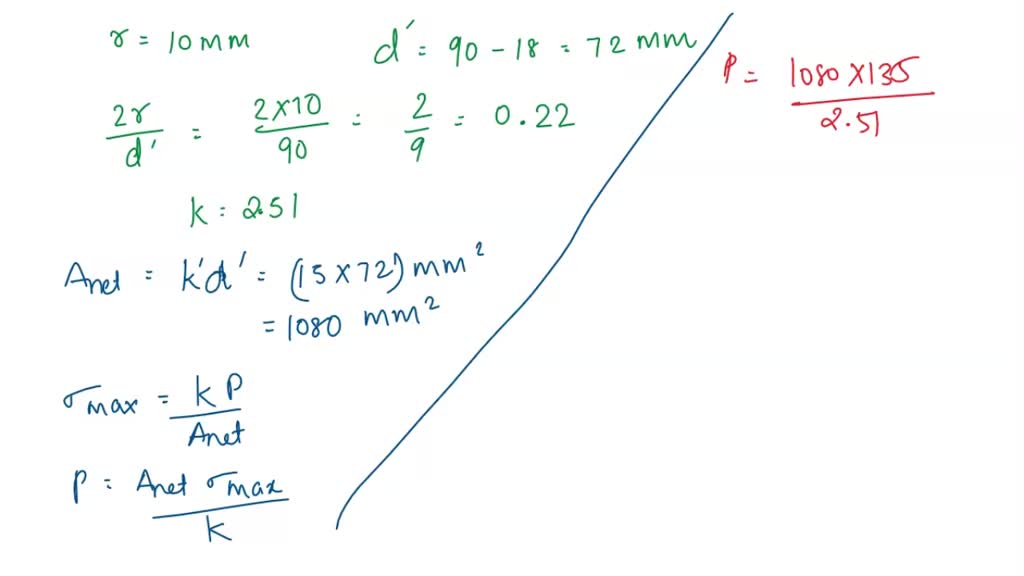 r = 10 mm
d' = 90 - 18 = 72 mm
2r/d' = 2×10/90 = 2/9 = 0.22
k = 2.51
Anet = k'd' = (15 × 72) mm²
= 1080 mm²
σmax = kP/Anet
P = Anet σmax/k
P = 1080×135/2.51